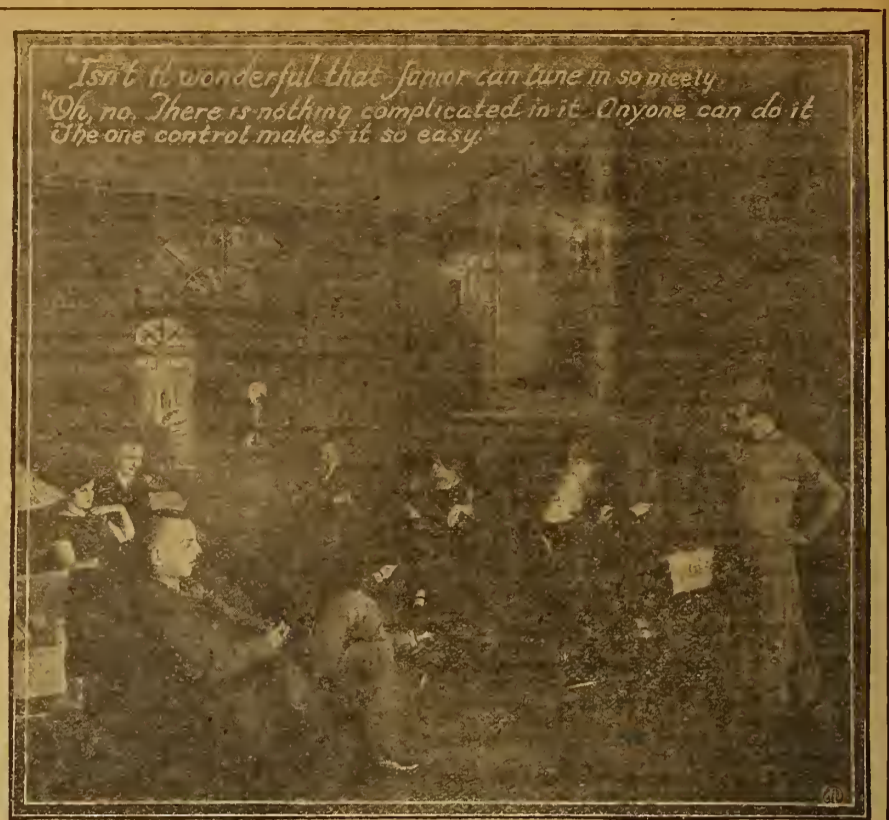 "Isn't it wonderful that Junior can tune in so nicely
"Oh, no. There is nothing complicated in it. Anyone can do it
The one control makes it so easy."